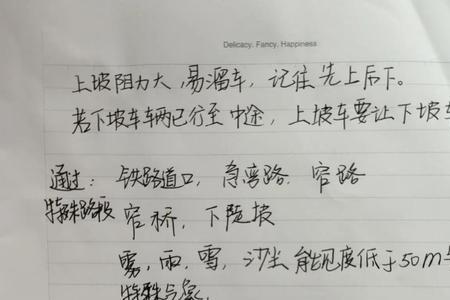 Delicacy. Fancy. Happiness
上坡阻力大,易溜车,记住先上后下。
若下坡车车辆已行至中途,上坡车要让下坡车
通过: 铁路道口, 急弯路. 窄路
特殊路段 窄桥, 下陡坡
雾, 雨, 雪, 沙尘 能见度低于50m
特殊气象